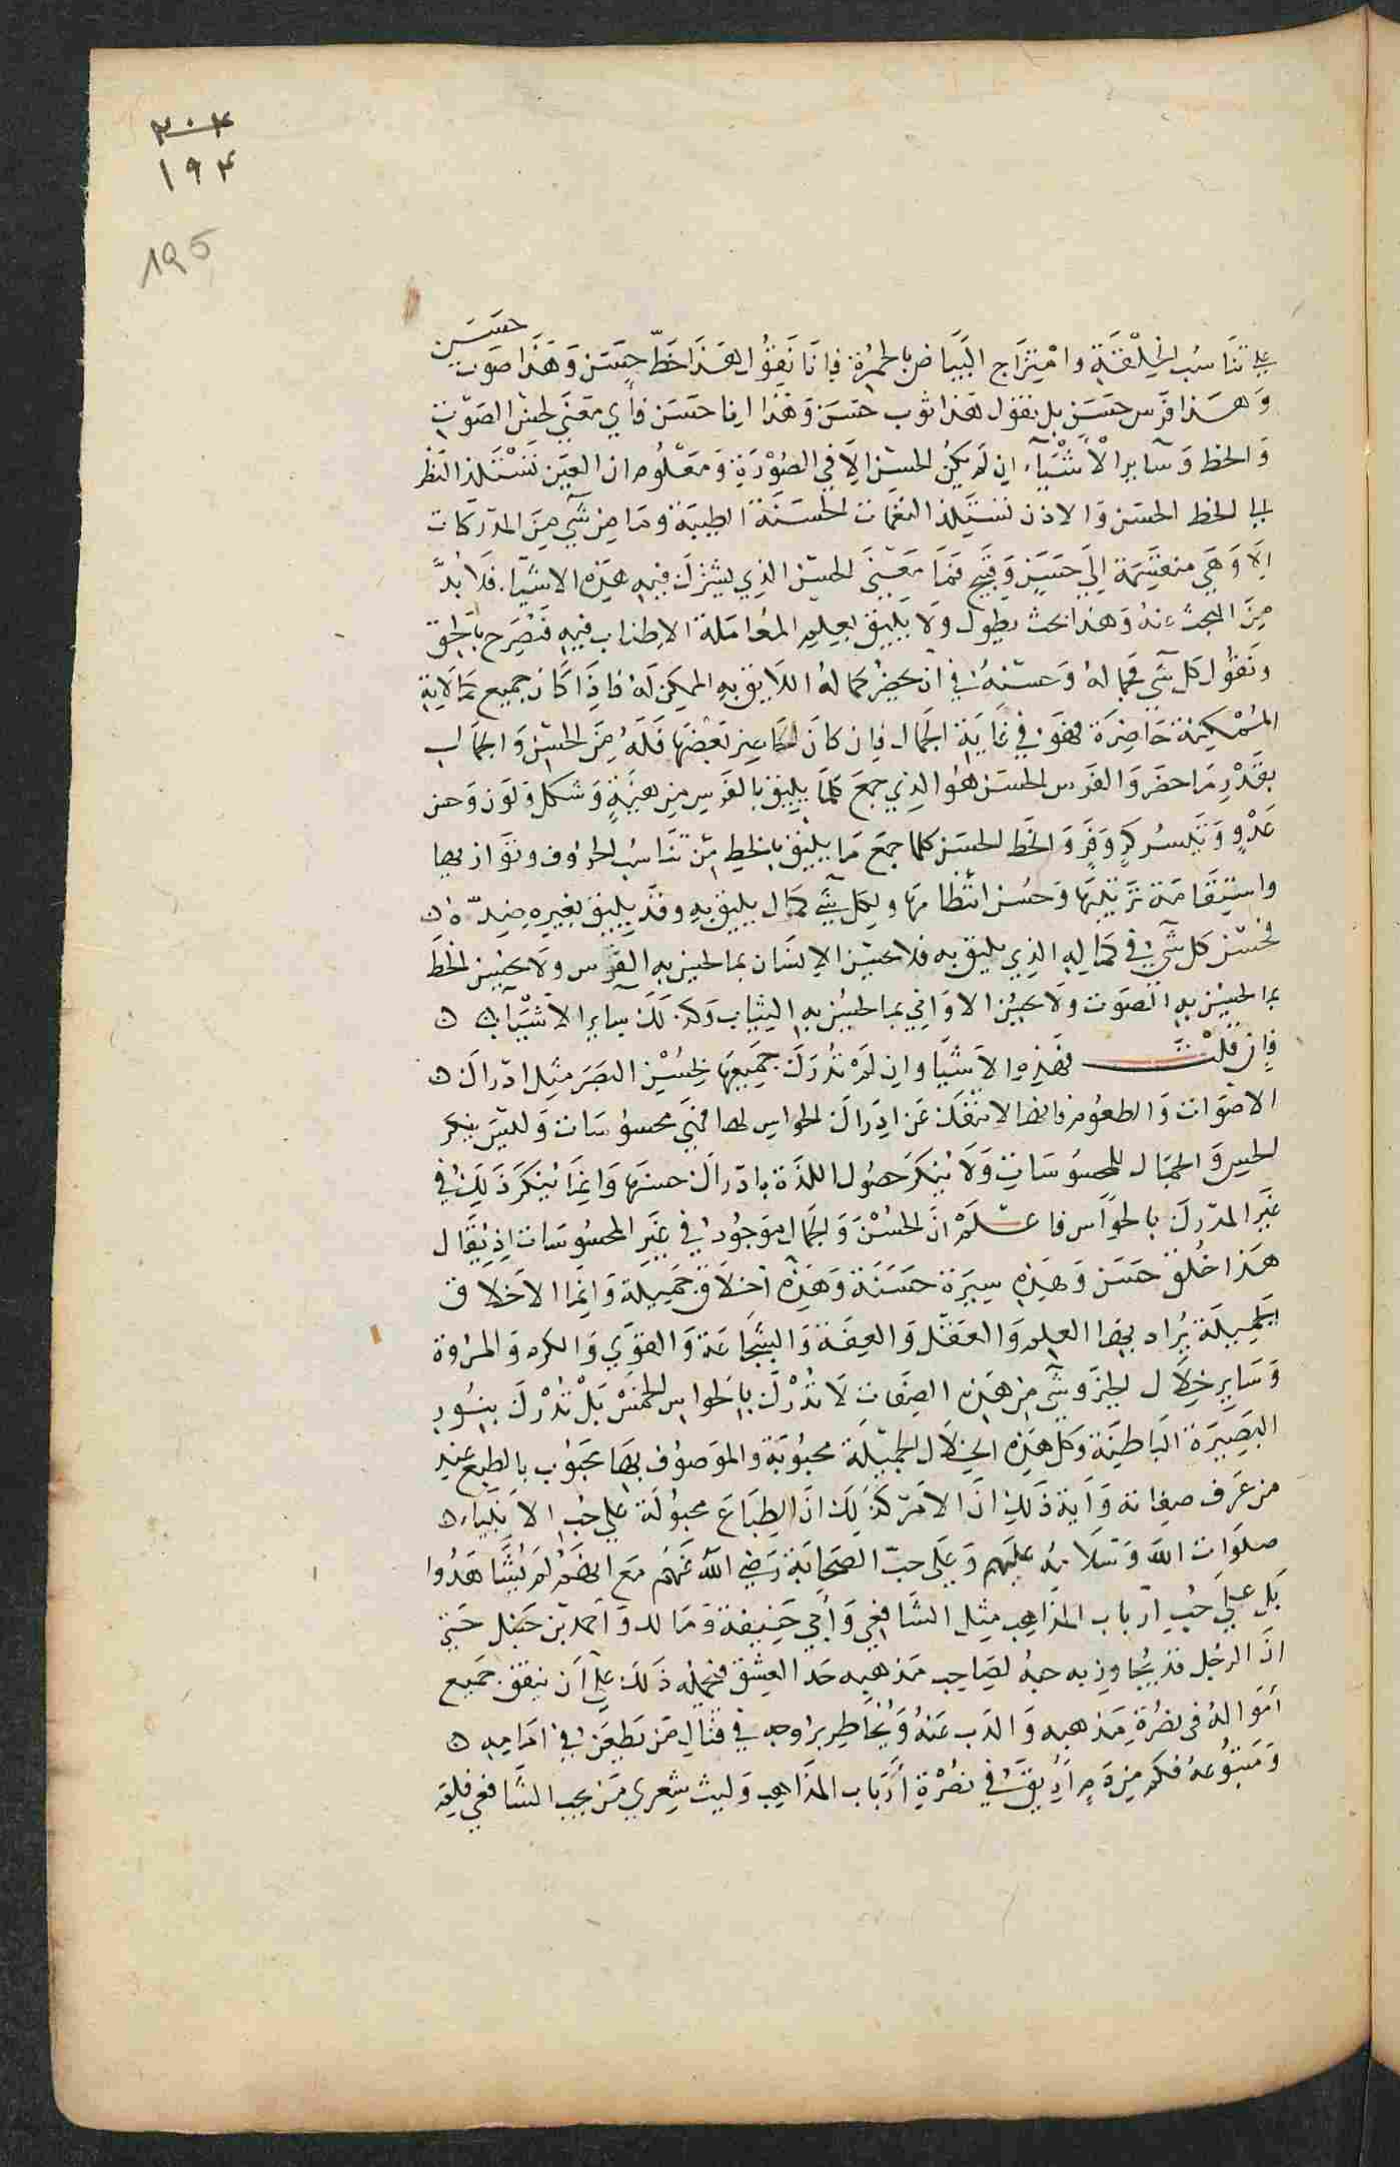 ٢٠٤
١٩٤
195
حسن
على تناسب الخلقة وامتزاج البياض بالحمرة فإنا نقول هذا خطّ حسن وهذا صوت
وهذا فرس حسن بل نقول هذا ثوب حسن وهذا انا حسن فاي معنى لحسن الصوت
والخط وسآير الأشيآء ان لم يكن الحسن الا في الصورة ومعلوم ان العين تستلذ النظر
الى الخط الحسن والاذن تستلذ النغمات الحسنة الطيبة وما من شي من المدركات
الا وهي منقسمة الي حسن وقبيح فما معنى الحسن الذي يشترك فيه هذه الاشيا. فلا بدّ
من البحث عنه وهذا بحث يطول ولا يليق بعلم المعاملة الاطناب فيه فنصرح بالحق
ونقول كل شي فجماله وحسنه في ان يحضر كماله اللايق به الممكن له فاذا كان جميع كمالاته
الممكنة حاضرة فهو في غاية الجمال فان كان الحاضر بعضها فله من الحسن والجمال
بقدر ما حضر والفرس الحسن هو الذي جمع كلما يليق بالفرس من هيئة وشكل ولون وحسن
عدو وتيسر كر وفر والخط الحسن كلما جمع ما يليق بالخط من تناسب الحروف وتوازيها
واستقامة ترتيبها وحسن انتظامها ولكل شي كمال يليق به وقد يليق بغيره ضدّه ن
فحسن كل شي في كماله الذي يليق به فلا يحسن الانسان بما يحسن به الفرس ولا يحسن الخط
بما يحسن به الصوت ولا يحسن الاواني بما يحسن به الثياب وكذلك ساير الاشيآ ن ن
فإن قلت فهذه الاشيا وان لم تدرك جميعها بحسن البصر مثل ادراك ن
الاصوات والطعوم فانها لا تنفك عن ادراك الحواس لها فهي محسوسات وليس ينكر
الحسن والجمال للمحسوسات ولا ينكر حصول اللذة بادراك حسنها وانما ينكر ذلك في
غير المدرك بالحواس فاعلم ان الحسن والجمال موجود في غير المحسوسات اذ يقال
هذا خلق حسن وهذه سيرة حسنة وهذه أخلاق جميلة وانما الاخلاق
الجميلة يراد بها العلم والعقل والعفة والشجاعة والتقوي والكرم والمروة
وساير خلال الخير وشي من هذه الصفات لا تدرك بالحواس الخمس بل تدرك بنور
البصيرة الباطنة وكل هذه الخلال الجميلة محبوبة والموصوف بها محبوب بالطبع عند
من عرف صفاته وآية ذلك ان الامر كذلك ان الطباع مجبولة على حب الانبياء ن
صلوات الله وسلامه عليهم وعلى حب الصحابة رضي الله عنهم مع انهم لم يشاهدوا
بل على حب ارباب المذاهب مثل الشافعي وأبي حنيفة ومالك وأحمد بن حنبل حتي
ان الرجل قد يجاوز به حبه لصاحب مذهبه حد العشق فيحمله ذلك على أن ينفق جميع
أمواله في نصرة مذهبه والذب عنه ويخاطر بروحه في قتال من يطعن في امامه ن
ومتبوعه فكم من دم أريق في نصرة أرباب المذاهب وليت شعري من يحب الشافعي فلم